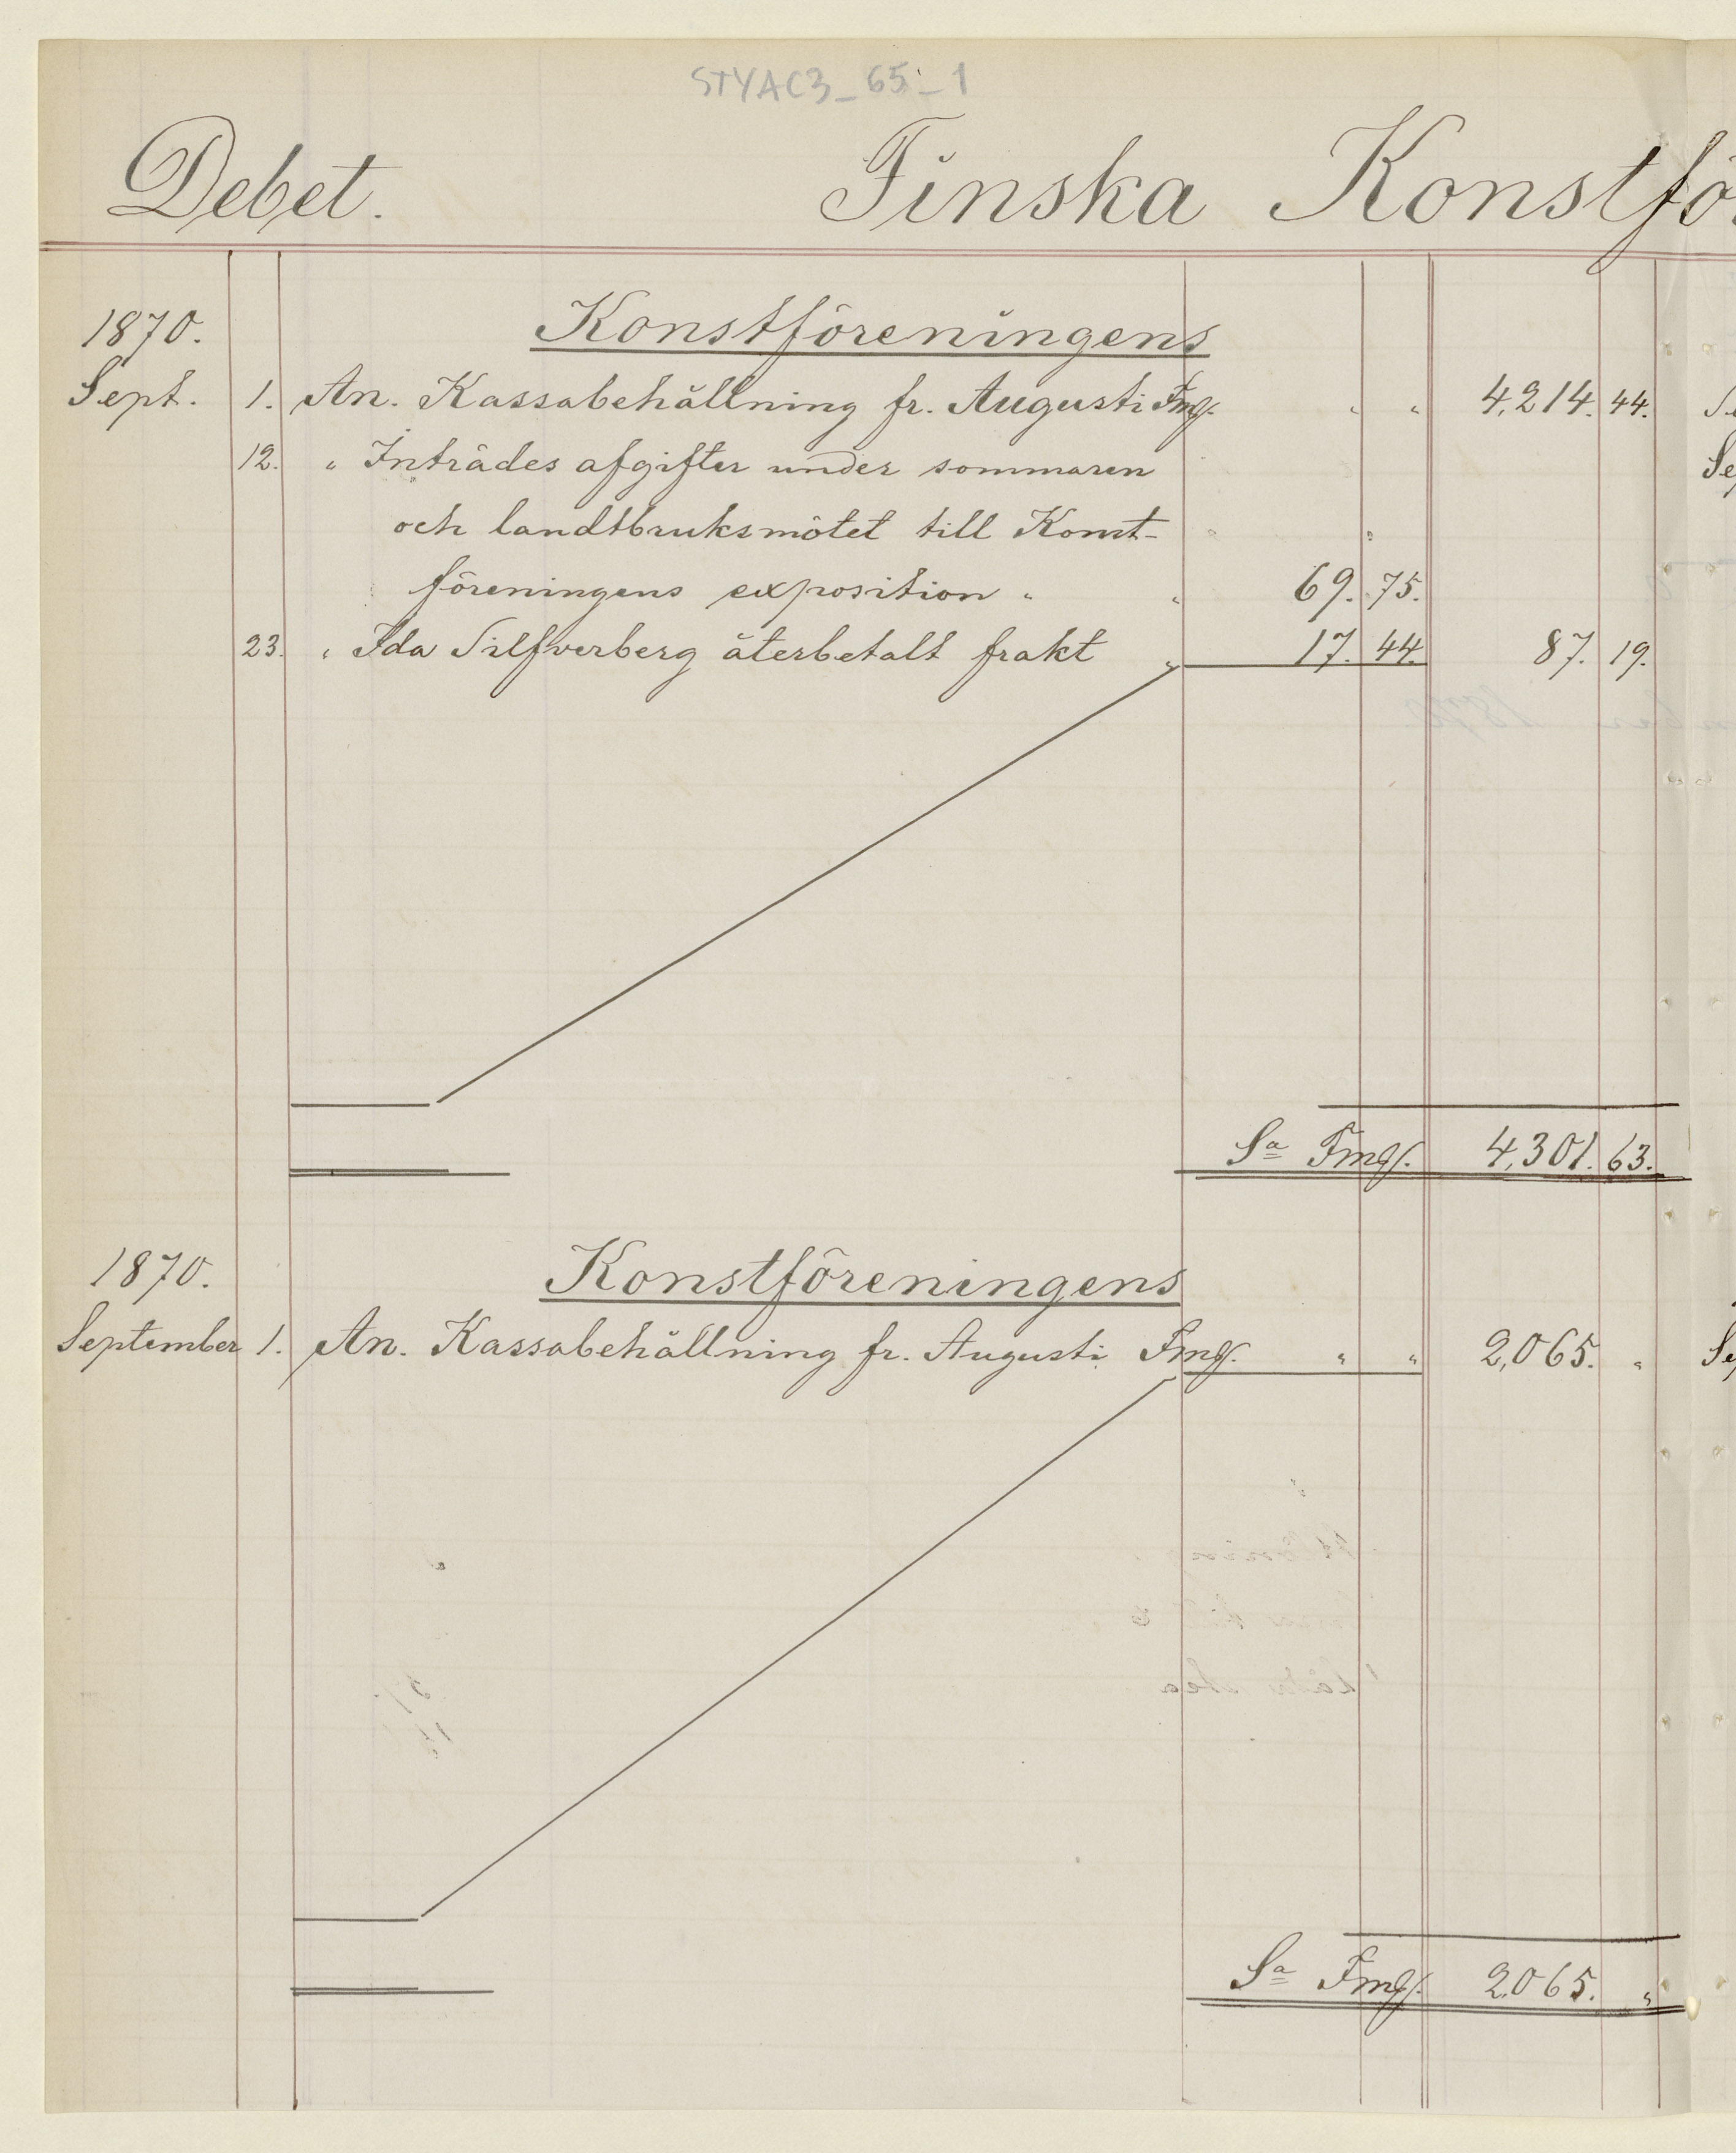 STYAC3_65_1
Debet. Finska Konstfö
Konstföreningens
1870.
Sept. 1. An. Kassabehållning fr. Augusti Fmg. " " 4,214. 44.
12. " Inträdes afgifter under sommaren
och landtbruksmötet till Konst-
föreningens exposition " " 69. 75.
23. " Ida Silfverberg återbetalt frakt " 17. 44. 87. 19.
Sa Fmg. 4,301. 63.
Konstföreningens
1870.
September 1. An. Kassabehållning fr. Augusti Fmg. " " 2,065. "
Sa Fmg. 2,065. "